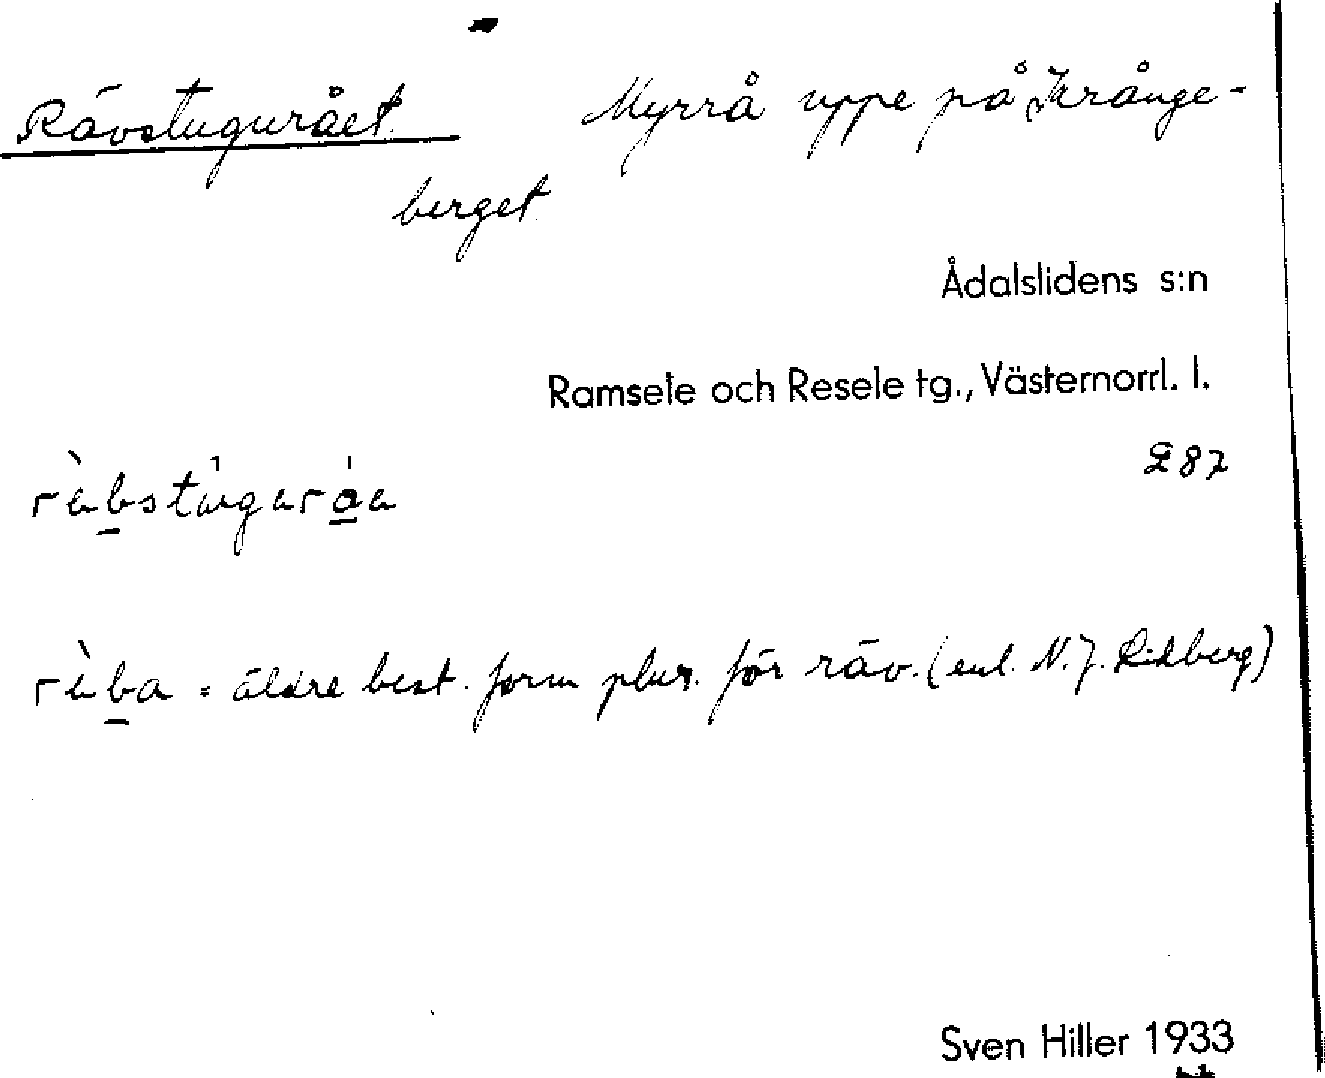 Rävstugurået Myrrå uppe på Krånge-
berget
Ådalslidens s:n
Ramsele och Resele tg., Västernorrl. l.
287
= äldre best. form plur. för räv. (enl. N. J.
Sven Hiller 1933